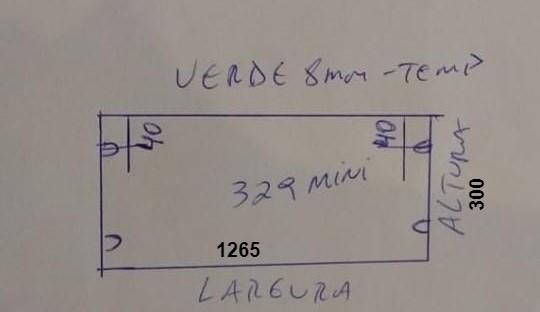 VERDE 8mm - TEMP
40
40
329 MINI
ALTURA
300
1265
LARGURA